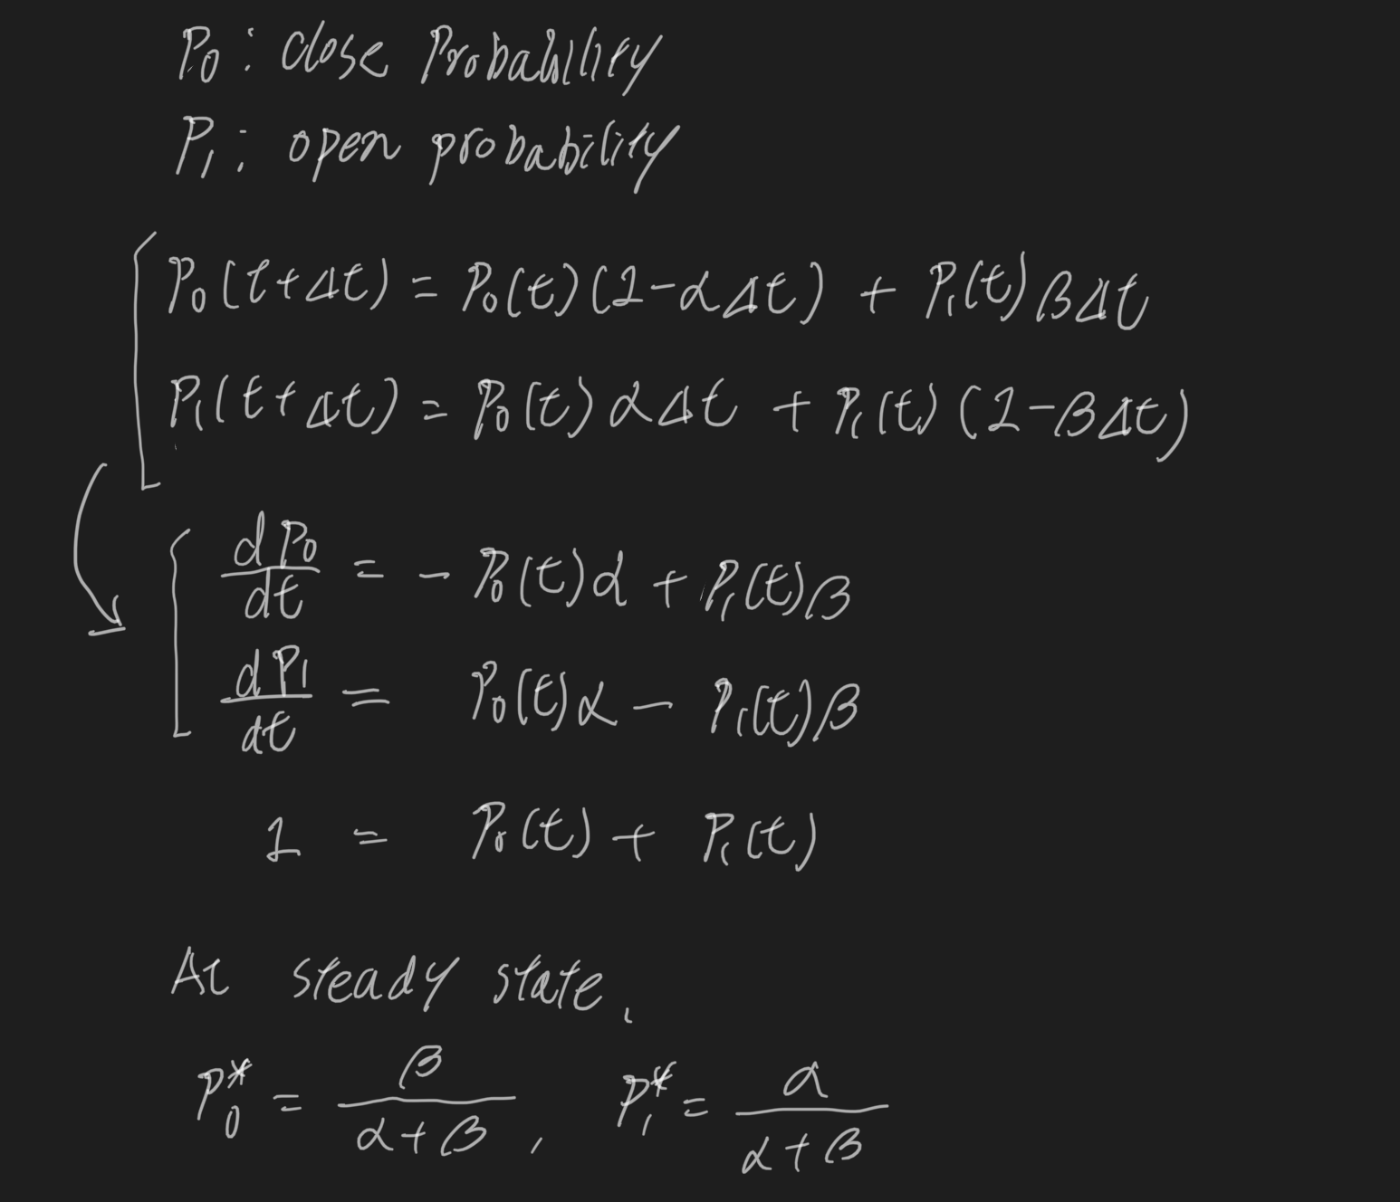 P₀ : close Probability
P₁ : open probability
P₀(t+Δt) = P₀(t)(1-αΔt) + P₁(t)βΔt
P₁(t+Δt) = P₀(t)αΔt + P₁(t)(1-βΔt)
dP₀/dt = - P₀(t)α + P₁(t)β
dP₁/dt = P₀(t)α - P₁(t)β
1 = P₀(t) + P₁(t)
At steady state,
P₀* = β/(α+β) , P₁* = α/(α+β)